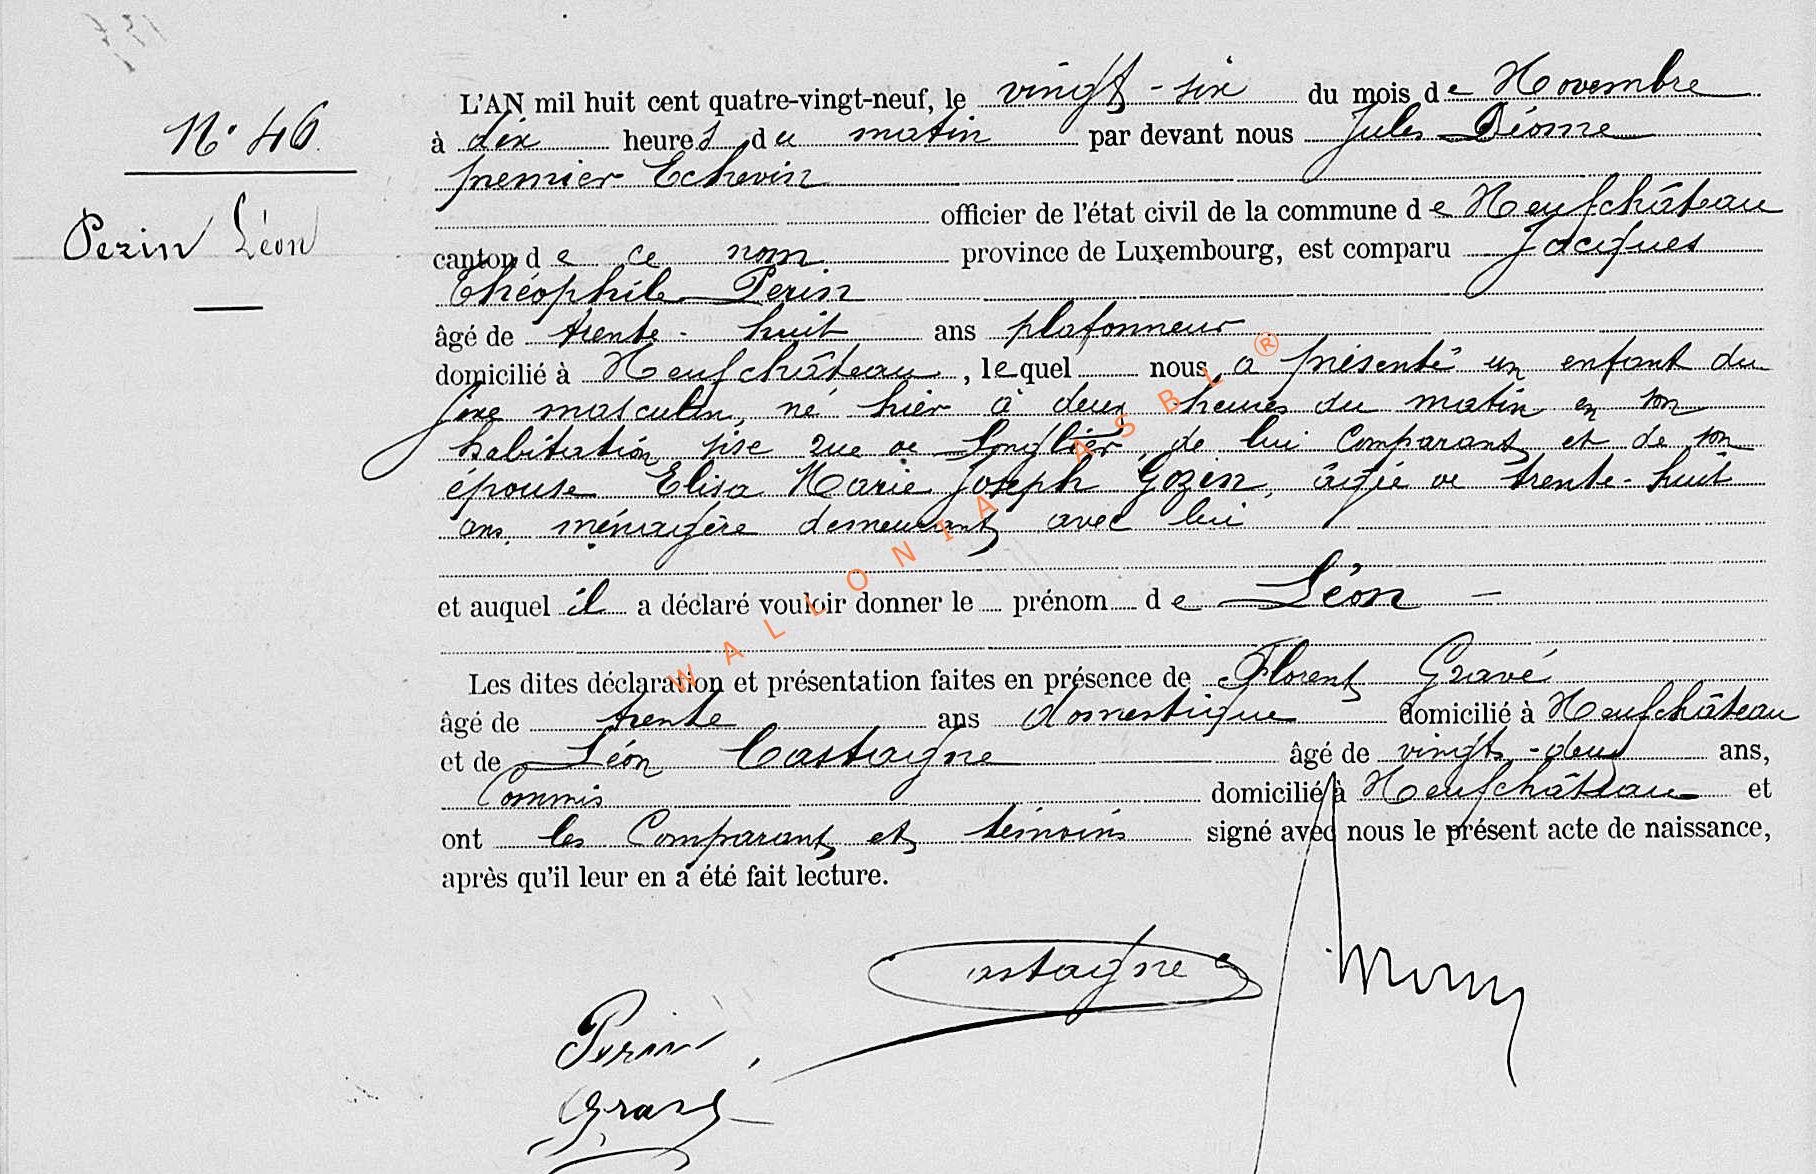 N° 46.
Perin Léon
L'AN mil huit cent quatre-vingt-neuf, le vingt-six du mois de Novembre
à dix heures du matin par devant nous Jules Déome
premier Echevin
officier de l'état civil de la commune de Neufchâteau
canton de ce nom province de Luxembourg, est comparu Jacques
Théophile Perin
âgé de trente-huit ans plafonneur
domicilié à Neufchâteau, lequel nous a présenté un enfant du
sexe masculin, né hier à deux heures du matin en son
habitation sise rue de Longlier, de lui Comparant et de son
épouse Elisa Marie Joseph Gozin, âgée de trente-huit
ans, ménagère demeurant avec lui
et auquel il a déclaré vouloir donner le prénom de Léon
Les dites déclaration et présentation faites en présence de Florent Gravé
âgé de trente ans domestique domicilié à Neufchâteau
et de Léon Castaigne âgé de vingt-deux ans,
Commis domicilié à Neufchâteau et
ont les Comparant et témoins signé avec nous le présent acte de naissance,
après qu'il leur en a été fait lecture.
Castaigne
Perin
Gravé
WALLONIA ASBL ®